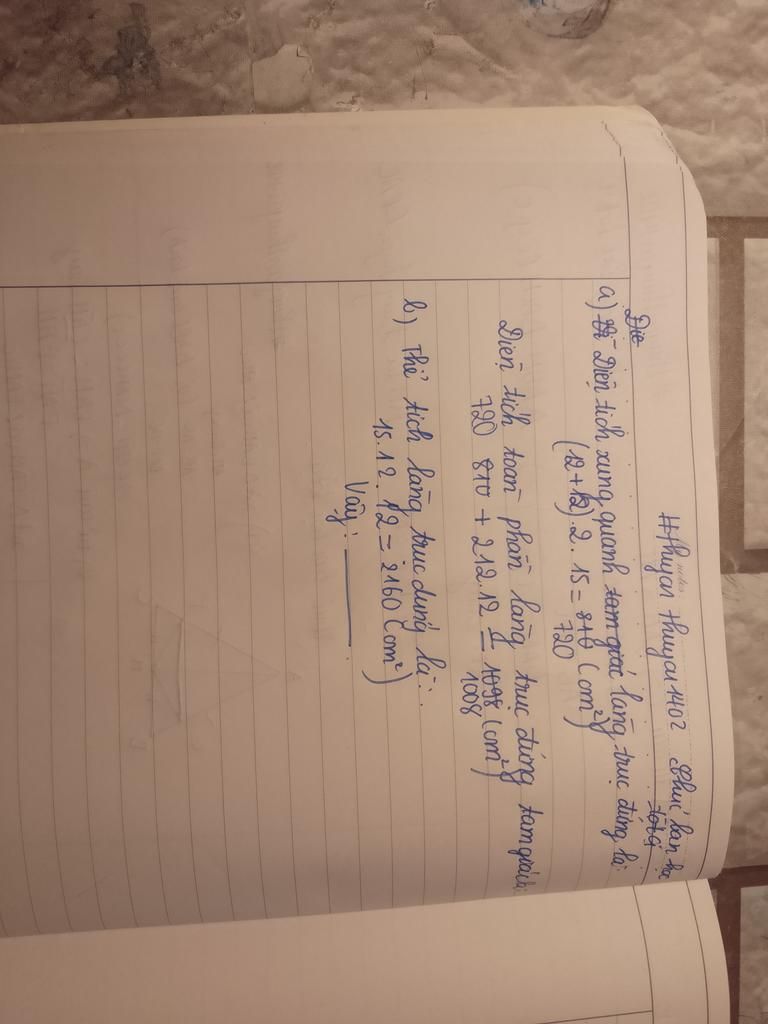 #thuyan thuyan1402 Chúc bạn học
tốt
Die
a) Diện tích xung quanh tam giác lăng trụ đứng là:
(12+12).2.15=810 (cm²)
720
Diện tích toàn phần lăng trụ đứng tam giác là:
720 810 + 2.12.12 = 1098 (cm²)
1008
b) Thể tích lăng trụ đứng là:
15.12.12=2160 (cm²)
Vậy: